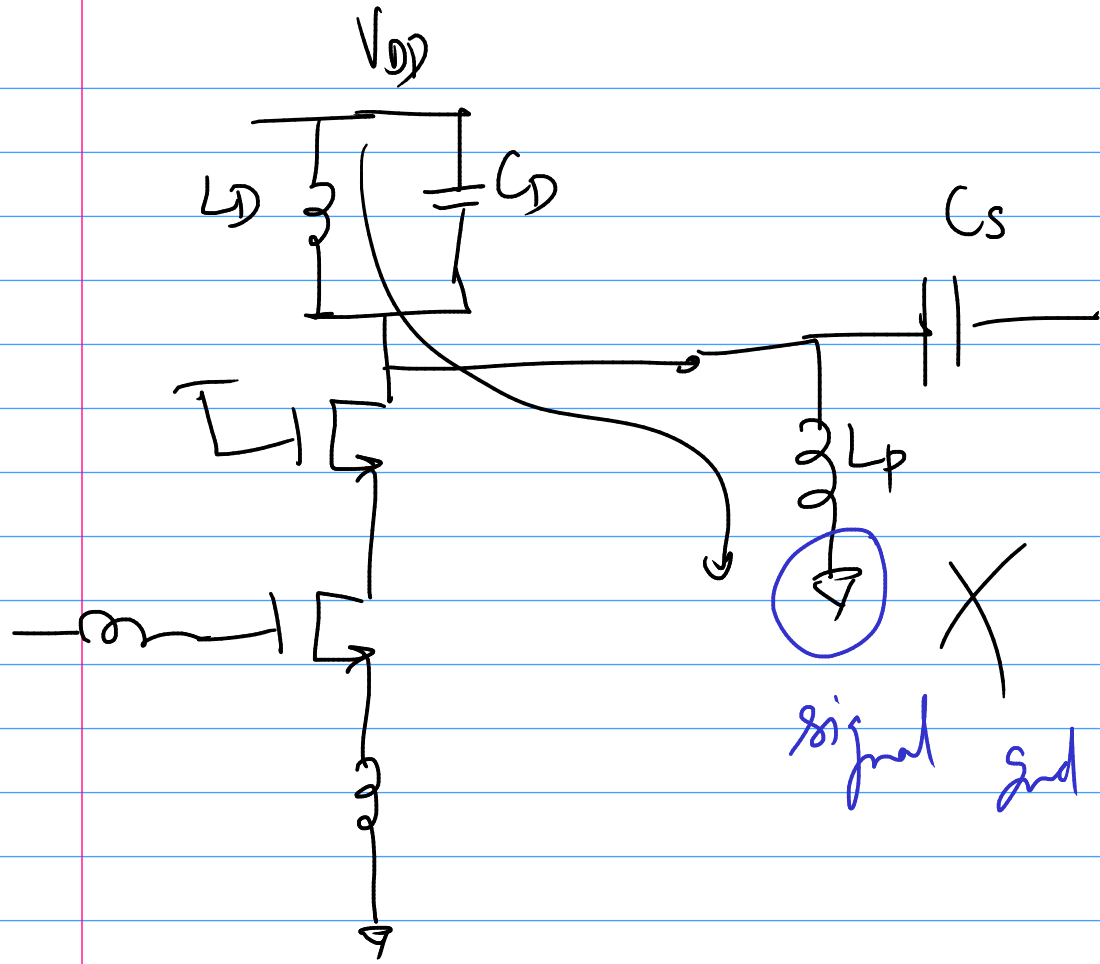 V_DD
L_D
C_D
C_S
L_P
X
signal gnd